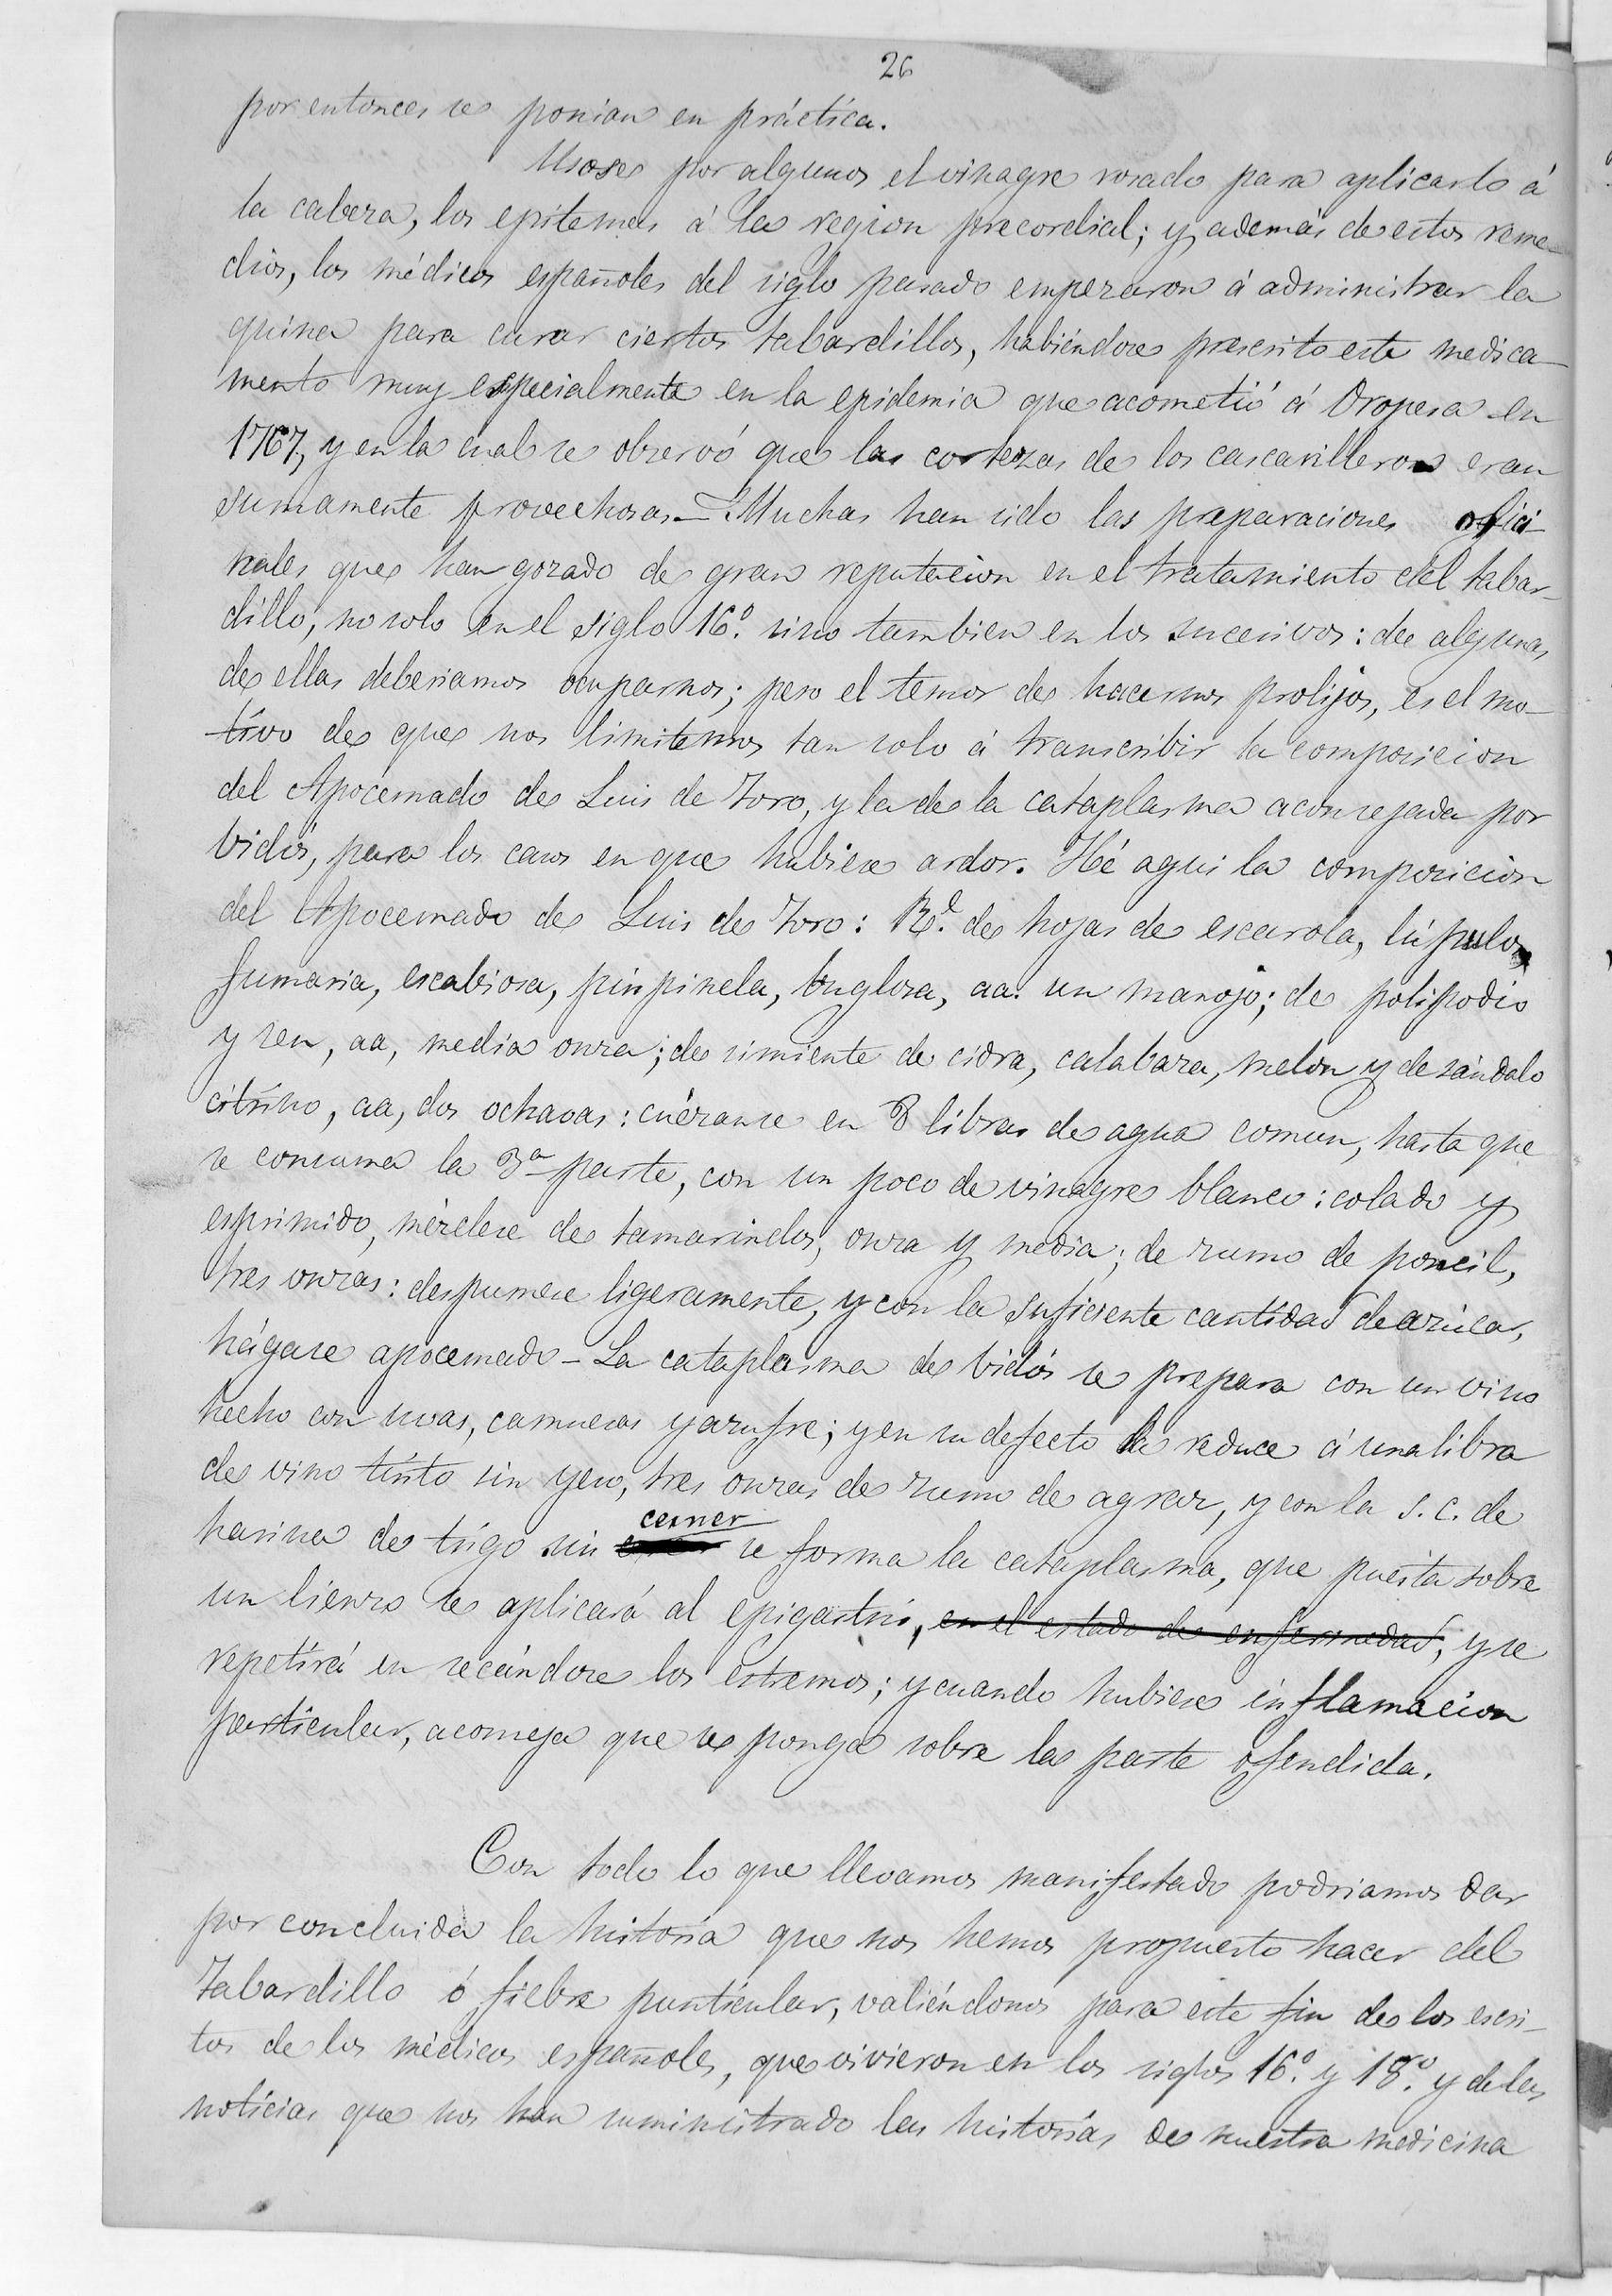 26
por entonces se ponian en práctica.
Usose por algunos el vinagre rosado para aplicarlo á
la cabeza, los epitemas á la region precordial; y además de estos reme-
dios, los médicos españoles del siglo pasado empezaron á administrar la
quina para curar ciertos tabardillos, habiéndose prescrito este medica-
mento muy especialmente en la epidemia que acometió á Oropesa en
1767, y en la cual se observó que las cortezas de los cascarilleros eran
sumamente provechosas.- Muchas han sido las preparaciones ofici-
nales que han gozado de gran reputacion en el tratamiento del tabar-
dillo, no solo en el siglo 16.º sino tambien en los sucesivos: de algunas
de ellas deberiamos ocuparnos; pero el temor de hacernos prolijos, es el mo-
tivo de que nos limitemos tan solo á transcribir la composicion
del Apócemado de Luis de Toro, y la de la cataplasma aconsejada por
Vidós, para los casos en que hubiese ardor. Hé aqui la composicion
del Apocemado de Luis de Toro: R.e de hojas de escarola, lúpulo,
fumaria, escabiosa, pinpinela, buglosa, aa. un manojo; de polipodio
y sen, aa, media onza; de simiente de cidra, calabaza, melon y de sándalo
citrino, aa, dos ochavas: cuézanse en 8 libras de agua comun, hasta que
se consuma la 3.a parte, con un poco de vinagre blanco: colado y
esprimido, mézclese de tamarindos, onza y media; de zumo de poncil,
tres onzas: despumese ligeramente, y con la suficiente cantidad de azúcar,
hágase apocemado - La cataplasma de Vidós se prepara con un vino
hecho con uvas, camuesas y azufre; y en su defecto la reduce á una libra
de vino tinto sin yeso, tres onzas de zumo de agraz, y con la s. c. de
harina de trigo sin cerner se forma la cataplasma, que puesta sobre
un lienzo se aplicará al epigastrio, en el estado de enfermedad, y se
repetirá en secándose los estremos; y cuando hubiese inflamacion
particular, aconseja que se ponga sobre la parte ofendida.
Con todo lo que llevamos manifestado podriamos dar
por concluida la historia que nos hemos propuesto hacer del
Tabardillo ó fiebre punticular, valiéndonos para este fin de los escri-
tos de los médicos españoles, que vivieron en los siglos 16.º y 18.º y de las
noticias que nos han suministrado las historias de nuestra medicina